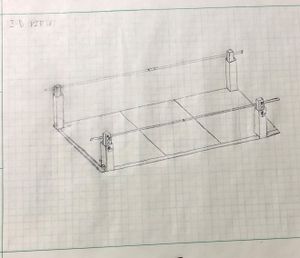 3-D VIEW